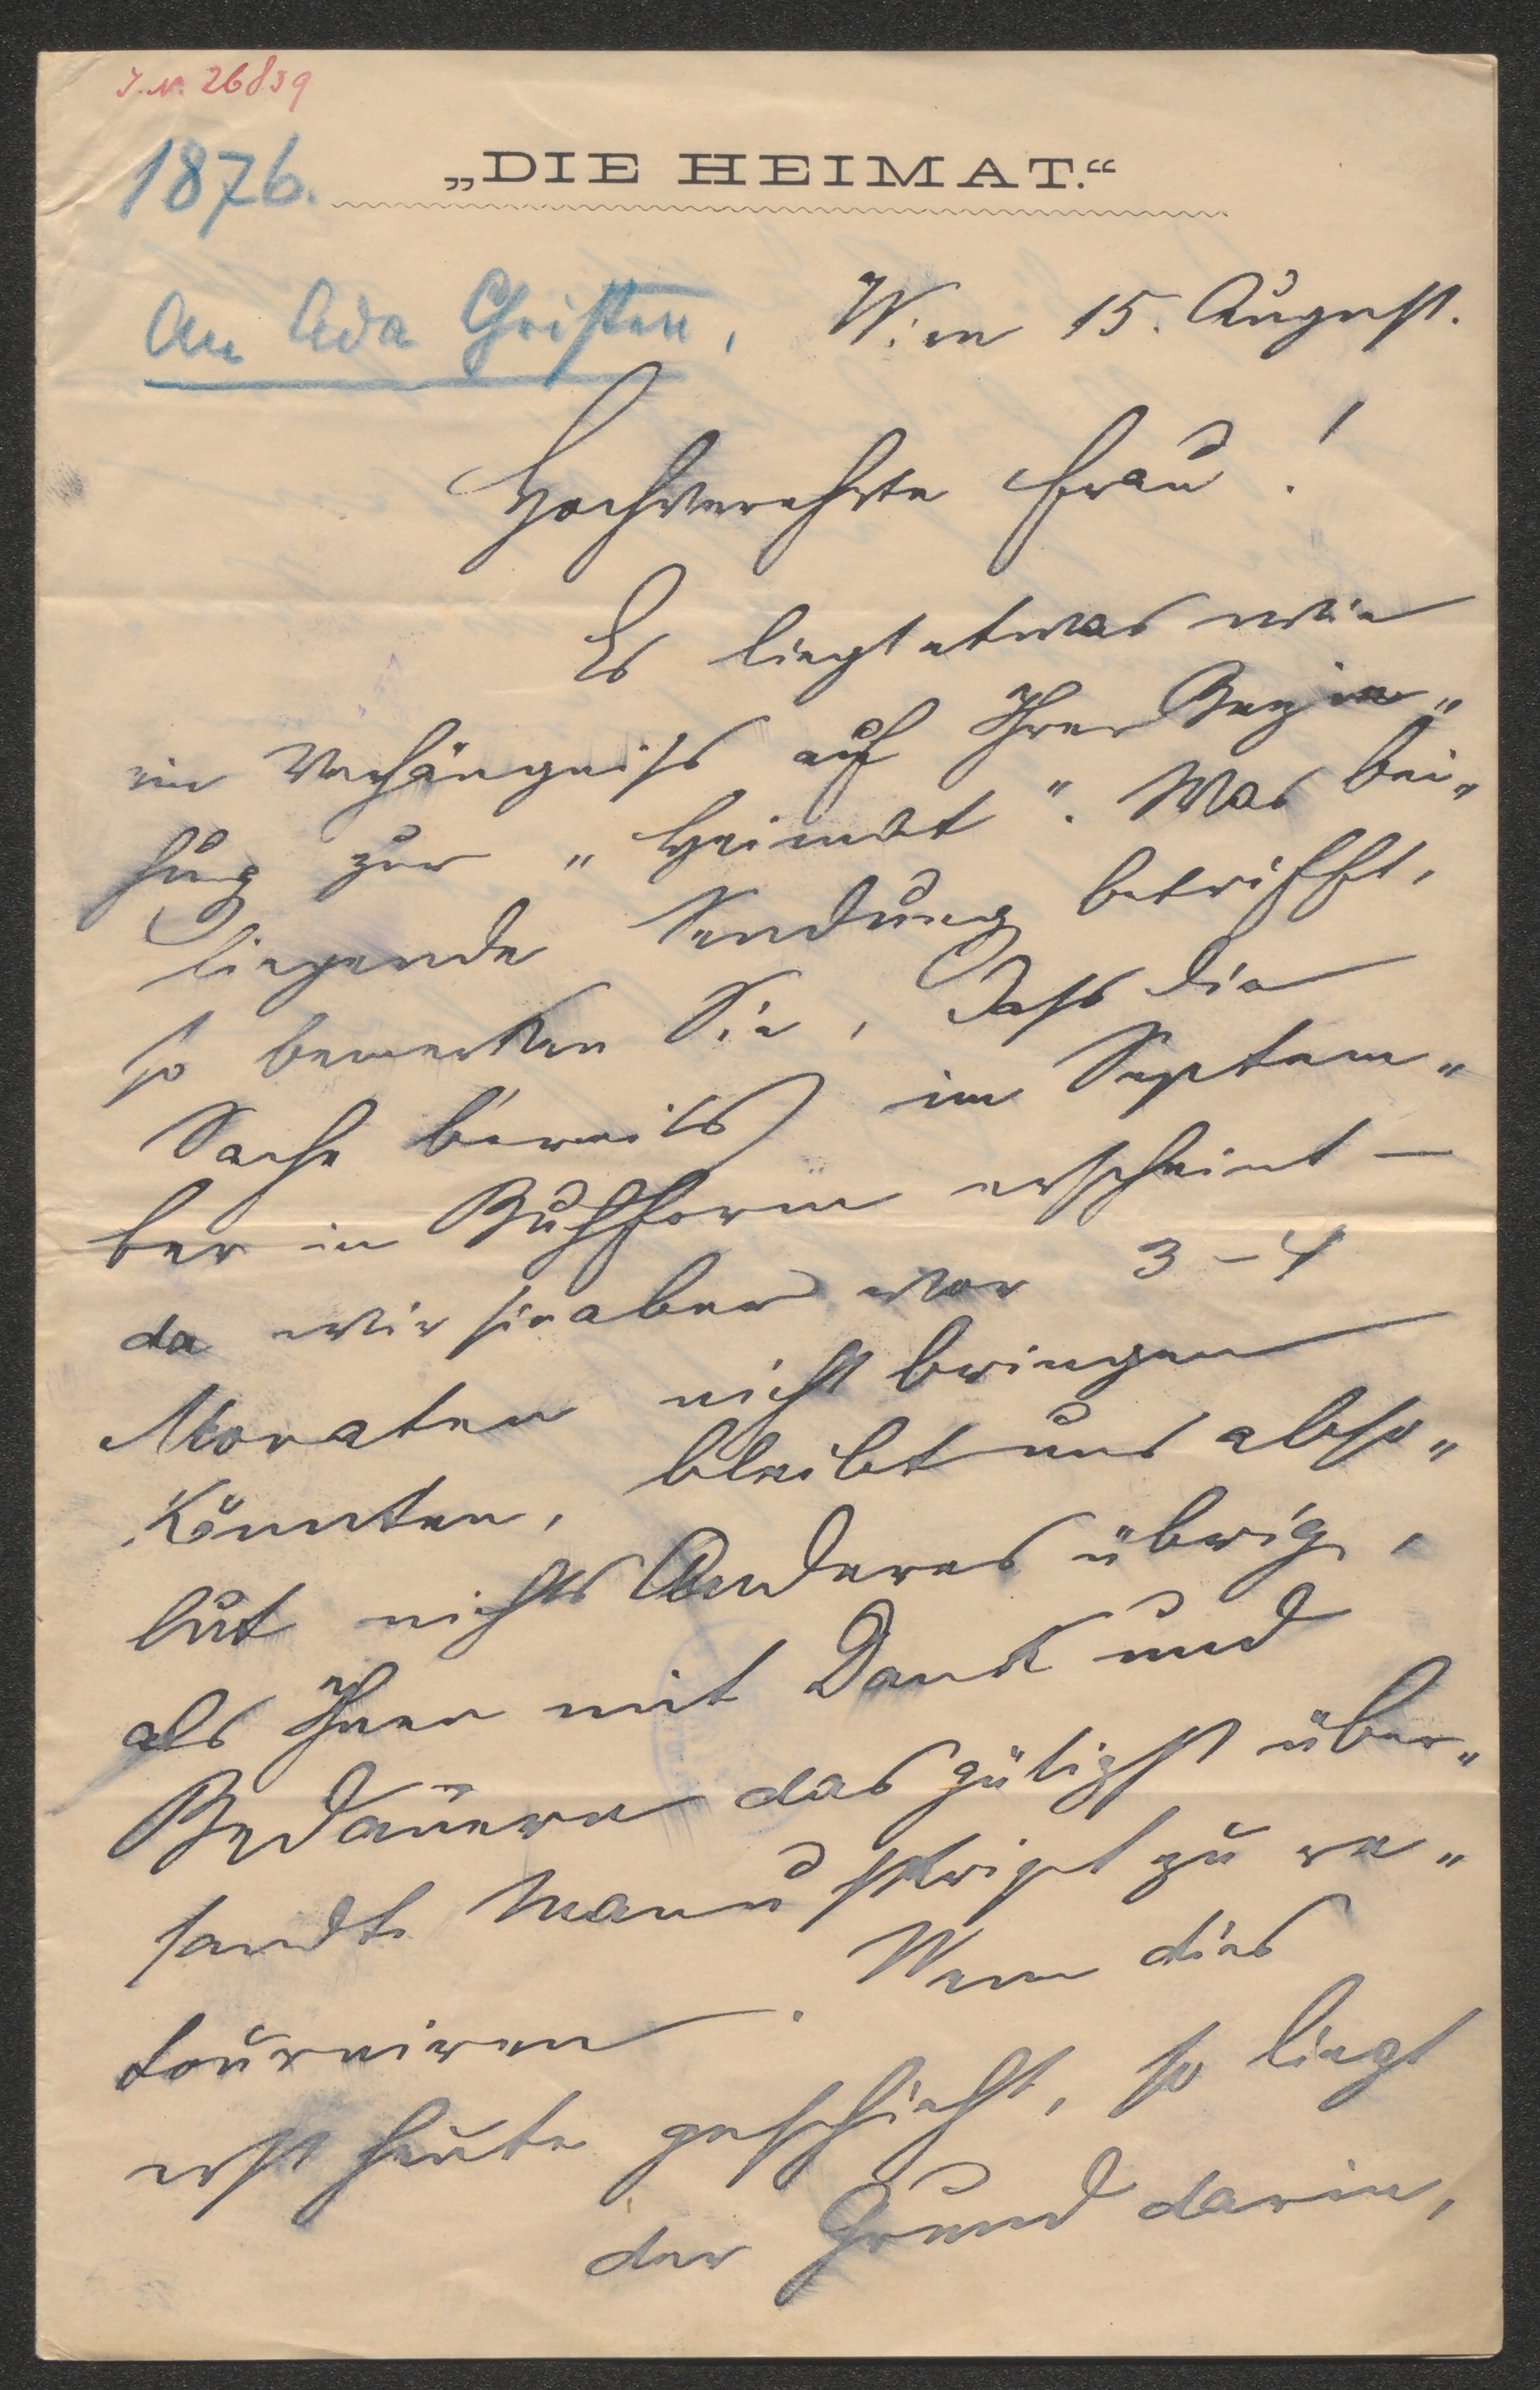 I.N. 26839
1876.
„DIE HEIMAT.“
An Ada Christen,
Wien 15. August.
Hochverehrte Frau!
Es liegt etwas wie
ein Verhängniss auf Ihrer Bezie„
hung zur „Heimat“. Was bei„
liegende Sendung betrifft,
so bemerken Sie, dass die
Sache bereits im Septem„
ber in Buchform erscheint —
da wir sie aber vor 3–4
Monaten nicht bringen
könnten, bleibt uns abso„
lut nichts Anderes übrig,
als Ihnen mit Dank und
Bedauern das gütigst über„
sandte Manuskript zu re„
tourniren. Wenn dies
erst heute geschieht, so liegt
der Grund darin,